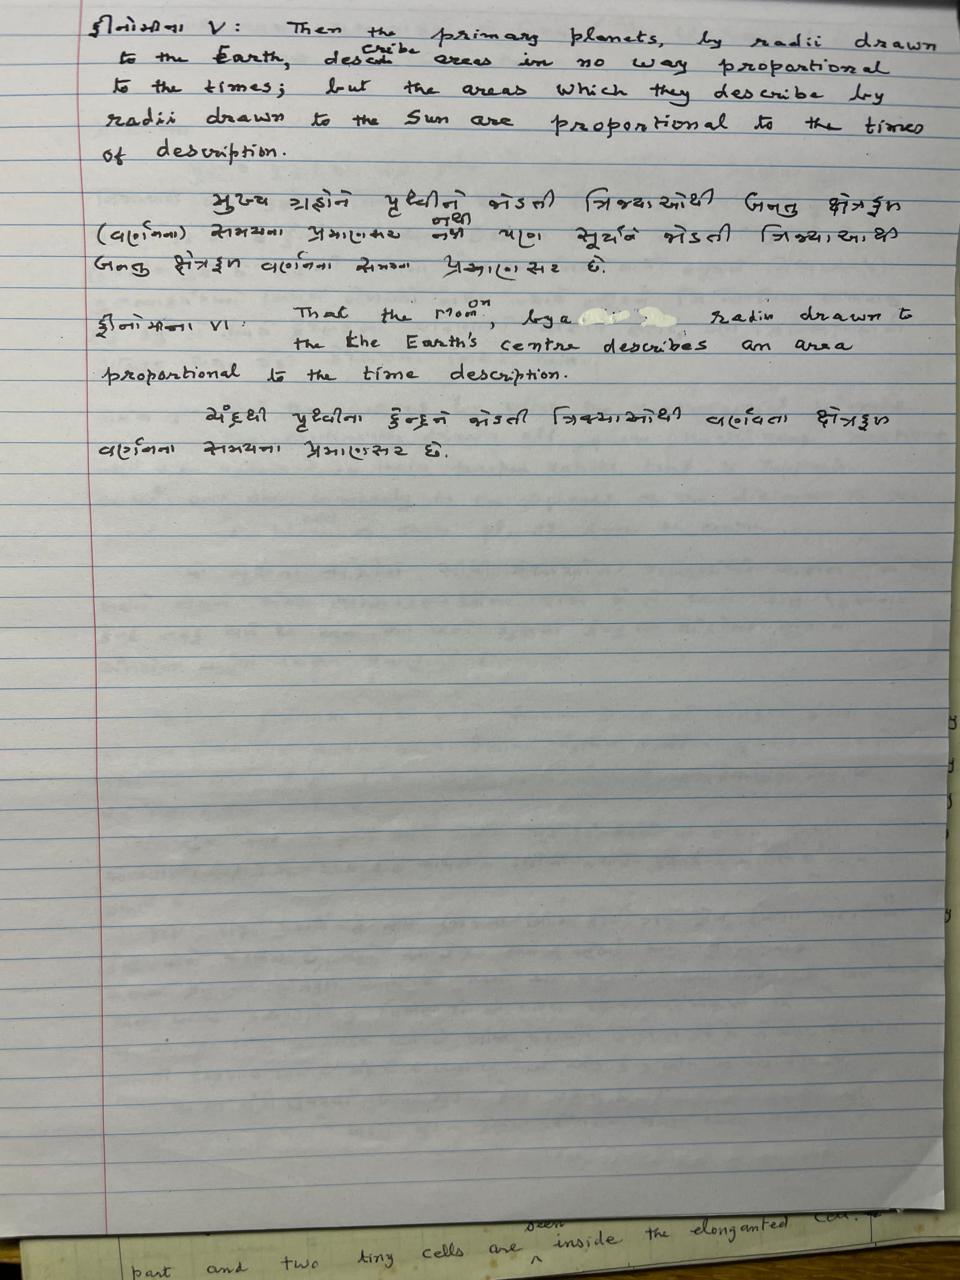 ફીનોમીના V: Then the primary planets, by radii drawn
to the Earth, describe areas in no way proportional
to the times; but the areas which they describe by
radii drawn to the Sun are proportional to the times
of description.
મુખ્ય ગ્રહોને પૃથ્વીને જોડતી ત્રિજ્યાઓથી બનતુ ક્ષેત્રફળ
(વર્ણનના) સમયના પ્રમાણસર નથી પણ સૂર્યને જોડતી ત્રિજ્યાઓથી
બનતુ ક્ષેત્રફળ વર્ણનના સમયના પ્રમાણસર છે.
ફીનોમીના VI. That the Moon, by a radius drawn to
the the Earth's centre describes an area
proportional to the time description.
ચંદ્રથી પૃથ્વીના કેન્દ્રને જોડતી ત્રિજ્યાઓથી વર્ણવતા ક્ષેત્રફળ
વર્ણનના સમયના પ્રમાણસર છે.
part and two tiny cells are seen inside the elonganted cell.